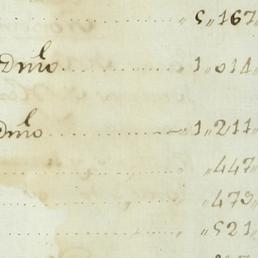 „ 5„167„
Dmlo . . . . . . . . . . . „ 1„014„
Dmlo . . . . . . . . . . . 1„211„
. . . . . . . . . . . „447„
. . . . . . . . . . . „473„
. . . . . . . . . . . „521„